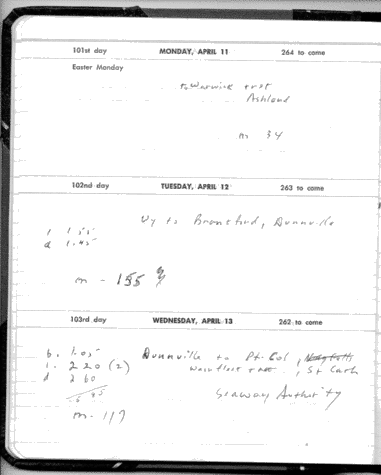 101st day MONDAY, APRIL 11 264 to come
Easter Monday
to Warwick trst
Ashland
m 34
102nd day TUESDAY, APRIL 12 263 to come
Uy to Brantford, Dunnville
l 1.55
d 1.45
m - 155
103rd day WEDNESDAY, APRIL 13 262 to come
b. 1.05 Dunnville to Pt. Col,
l. 2 20 (2) , St Cath
d 2 60
Seaway Authority
m - 117